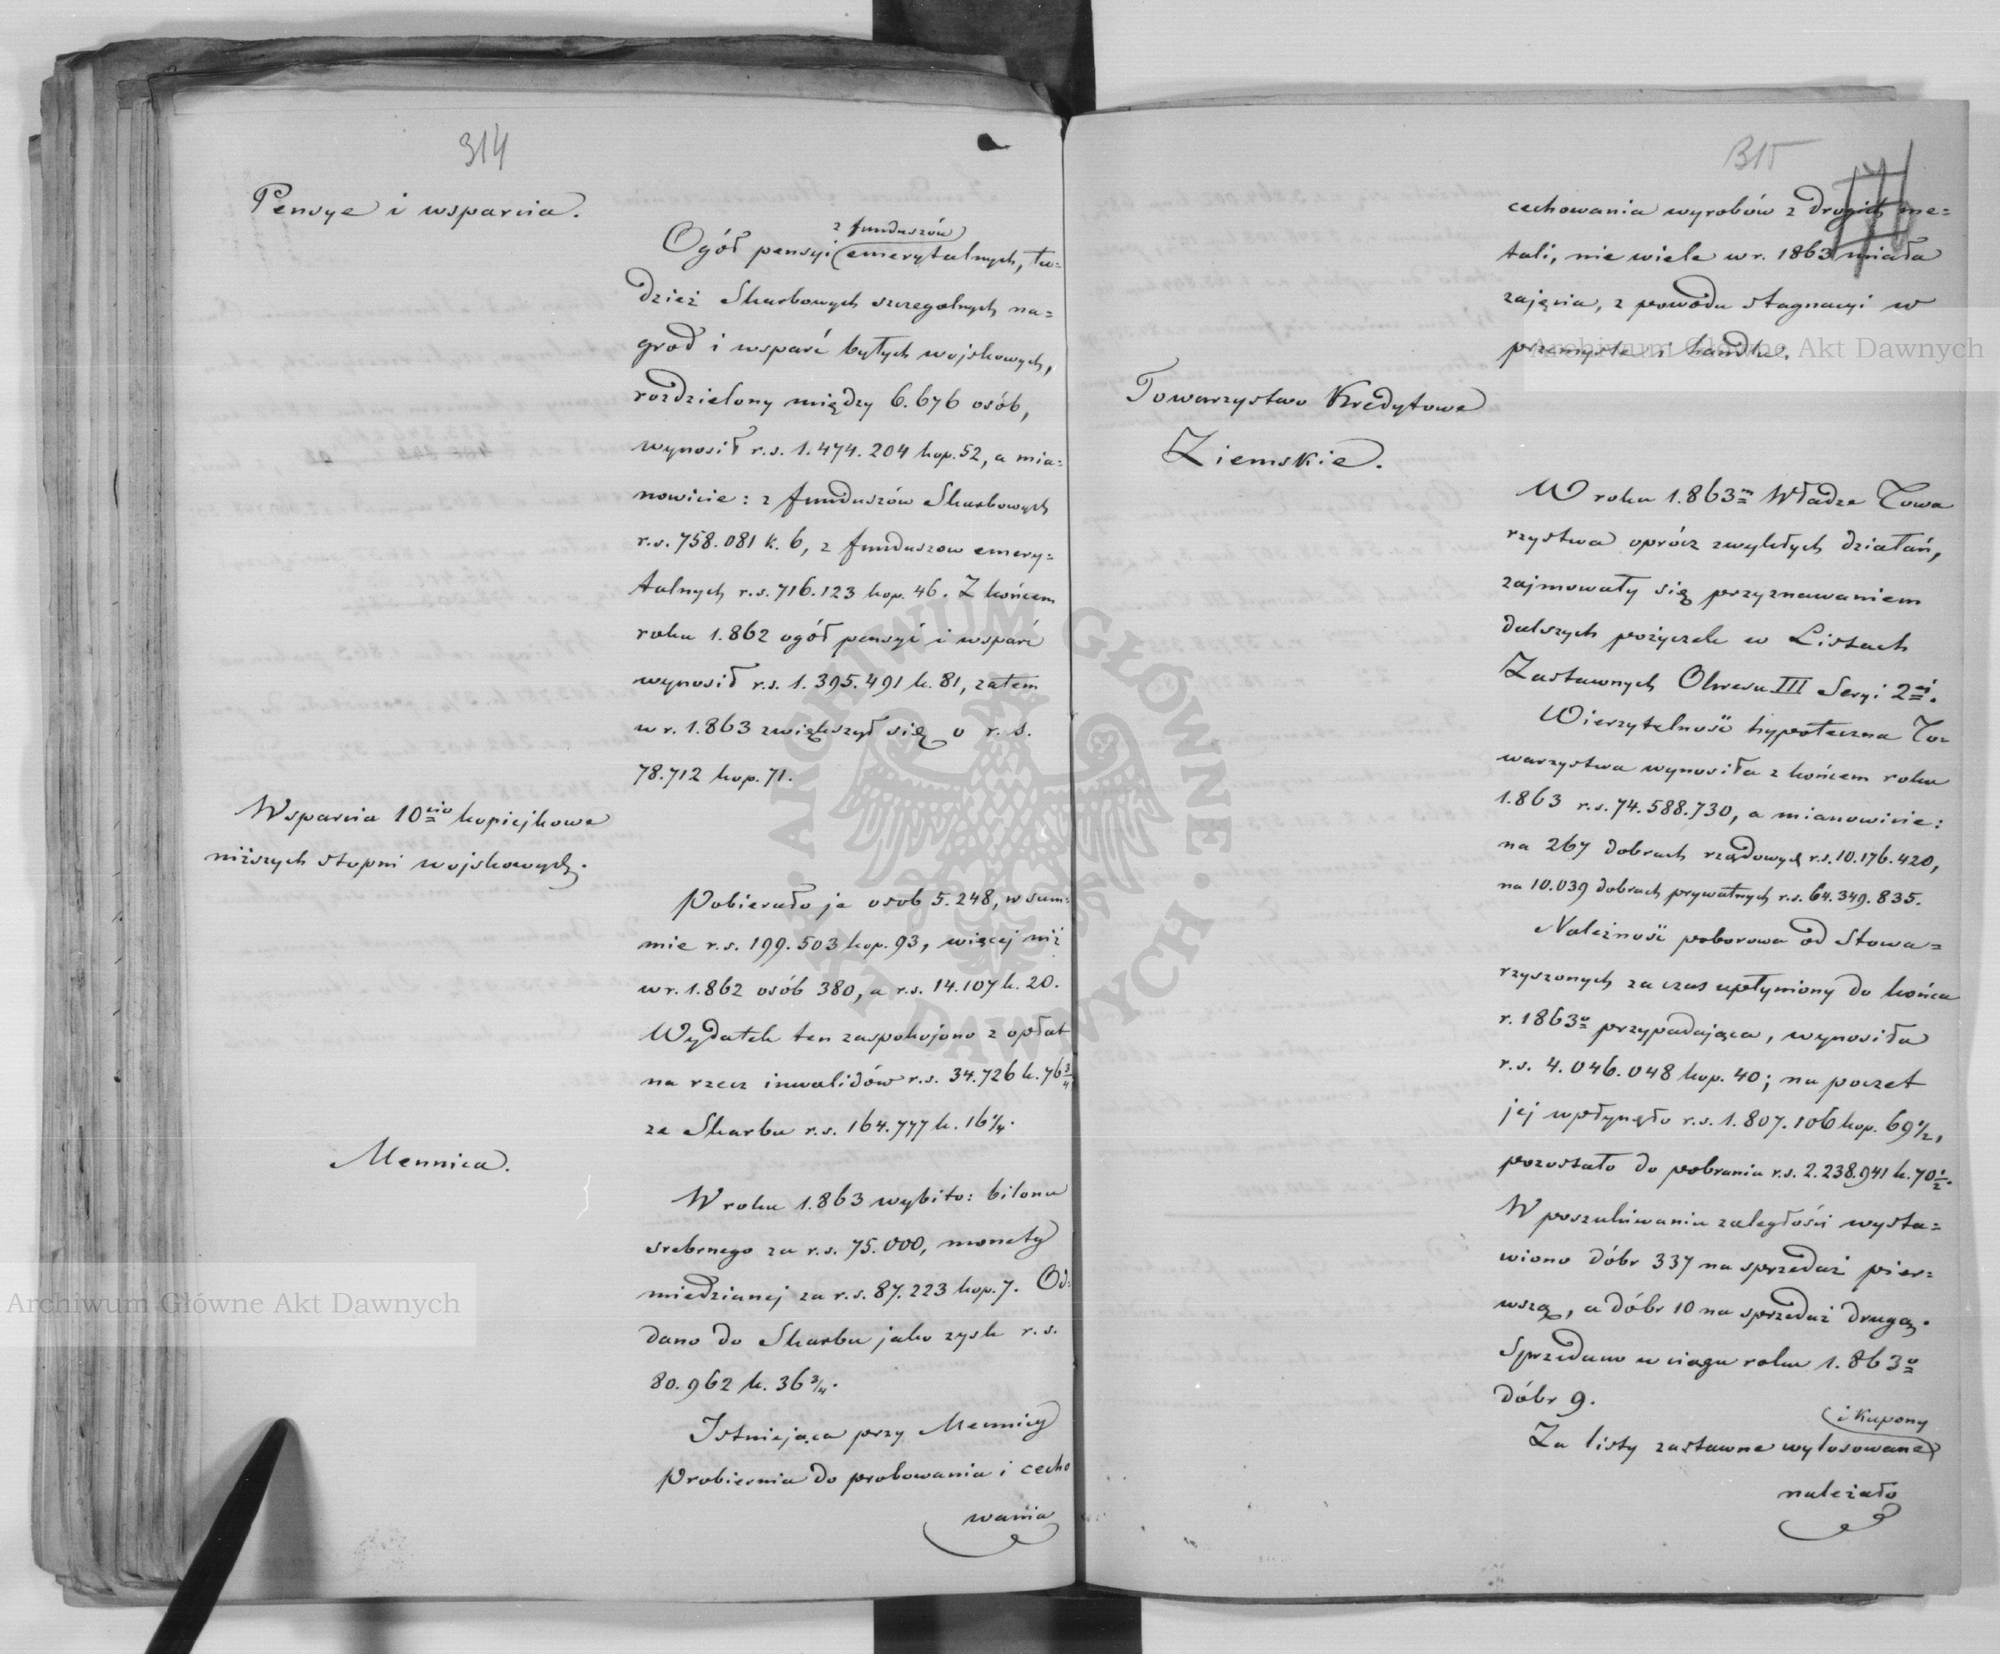 314
Pensye i wsparcia.
z funduszów
Ogół pensyi emerytalnych, tu=
dzież Skarbowych szczególnych na=
gród i wsparć byłych wojskowych,
rozdzielony między 6.676 osób,
wynosił r.s. 1.474.204 kop. 52, a mia=
nowicie: z funduszów Skarbowych
r.s. 758.081 k. 6, z funduszow emery=
talnych r.s. 716.123 kop. 46. Z końcem
roku 1.862 ogół pensyi i wsparć
wynosił r.s. 1.395.491 k. 81, zatem
w r. 1.863 zwiększył się o r.s.
78.712 kop. 71.
Wsparcia 10cio kopiejkowe
niższych stopni wojskowych.
Pobierało je osob 5.248, w sum=
mie r.s. 199.503 kop. 93, więcej niż
w r. 1.862 osób 380, a r.s. 14.107 k. 20.
Wydatek ten zaspokojono z opłat
na rzecz inwalidów r.s. 34.726 k. 76 3/4
ze Skarbu r.s. 164.777 k. 16 1/4.
Mennica.
W roku 1.863 wybito: bilonu
srebrnego za r.s. 75.000, monety
miedzianej za r.s. 87.223 kop. 7. Od=
dano do Skarbu jako zysk r.s.
80.962 k. 36 3/4.
Istniejąca przy Mennicy
Probiernia do probowania i cecho
wania
315
cechowania wyrobów z drogich me=
tali, nie wiele w r. 1863 miała
zajęcia, z powodu stagnacyi w
przemyśle i handlu.
Towarzystwo Kredytowe
Ziemskie.
W roku 1.863m Władze Towa
rzystwa oprócz zwykłych działań,
zajmowały się przyznawaniem
dalszych pożyczek w Listach
Zastawnych Okresu III Seryi 2ej.
Wierzytelność hypoteczna To=
warzystwa wynosiła z końcem roku
1.863 r.s. 74.588.730, a mianowicie:
na 267 dobrach rządowych r.s. 10.176.420,
na 10.039 dobrach prywatnych r.s. 64.349.835.
Należność poborowa od Stowa=
rzyszonych za czas upłyniony do końca
r. 1863o przypadająca, wynosiła
r.s. 4.046.048 kop. 40; na poczet
jej wpłynęło r.s. 1.807.106 kop. 69 1/2,
pozostało do pobrania r.s. 2.238.941 k. 70 1/2.
W poszukiwaniu zaległości wysta=
wiono dóbr 337 na sprzedaż pier=
wszą, a dóbr 10 na sprzedaż drugą.
Sprzedano w ciągu roku 1.863o
dóbr 9.
i kupony
Za listy zastawne wylosowane
należało
Archiwum Główne Akt Dawnych
Archiwum Główne Akt Dawnych
ARCHIWUM GŁÓWNE · AKT DAWNYCH ·